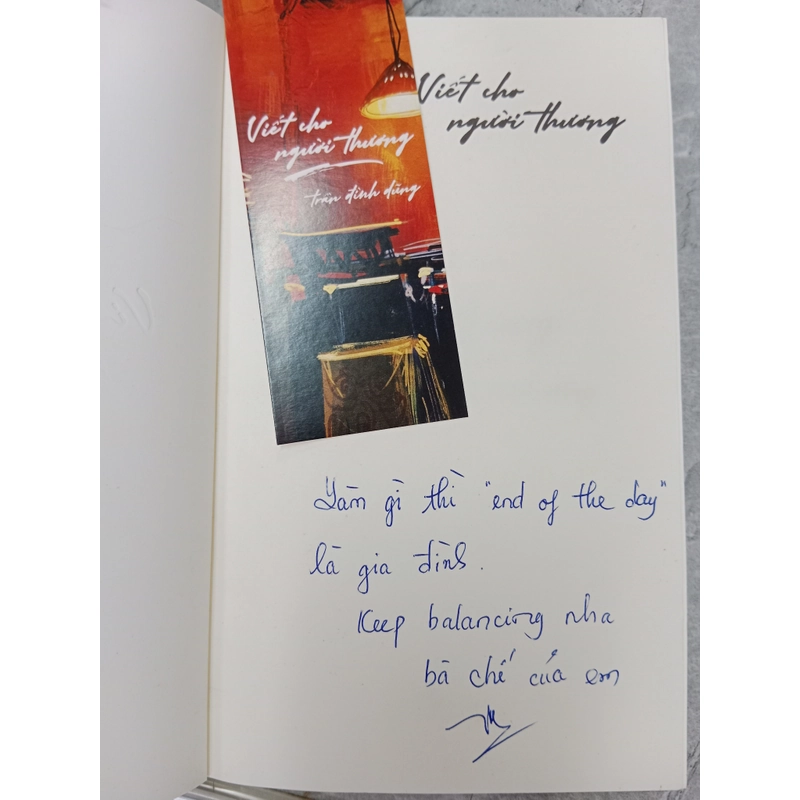 Viết cho
người thương
trần đình dũng
Viết cho
người thương
Làm gì thì "end of the day"
là gia đình.
Keep balancing nha
bà chế của em